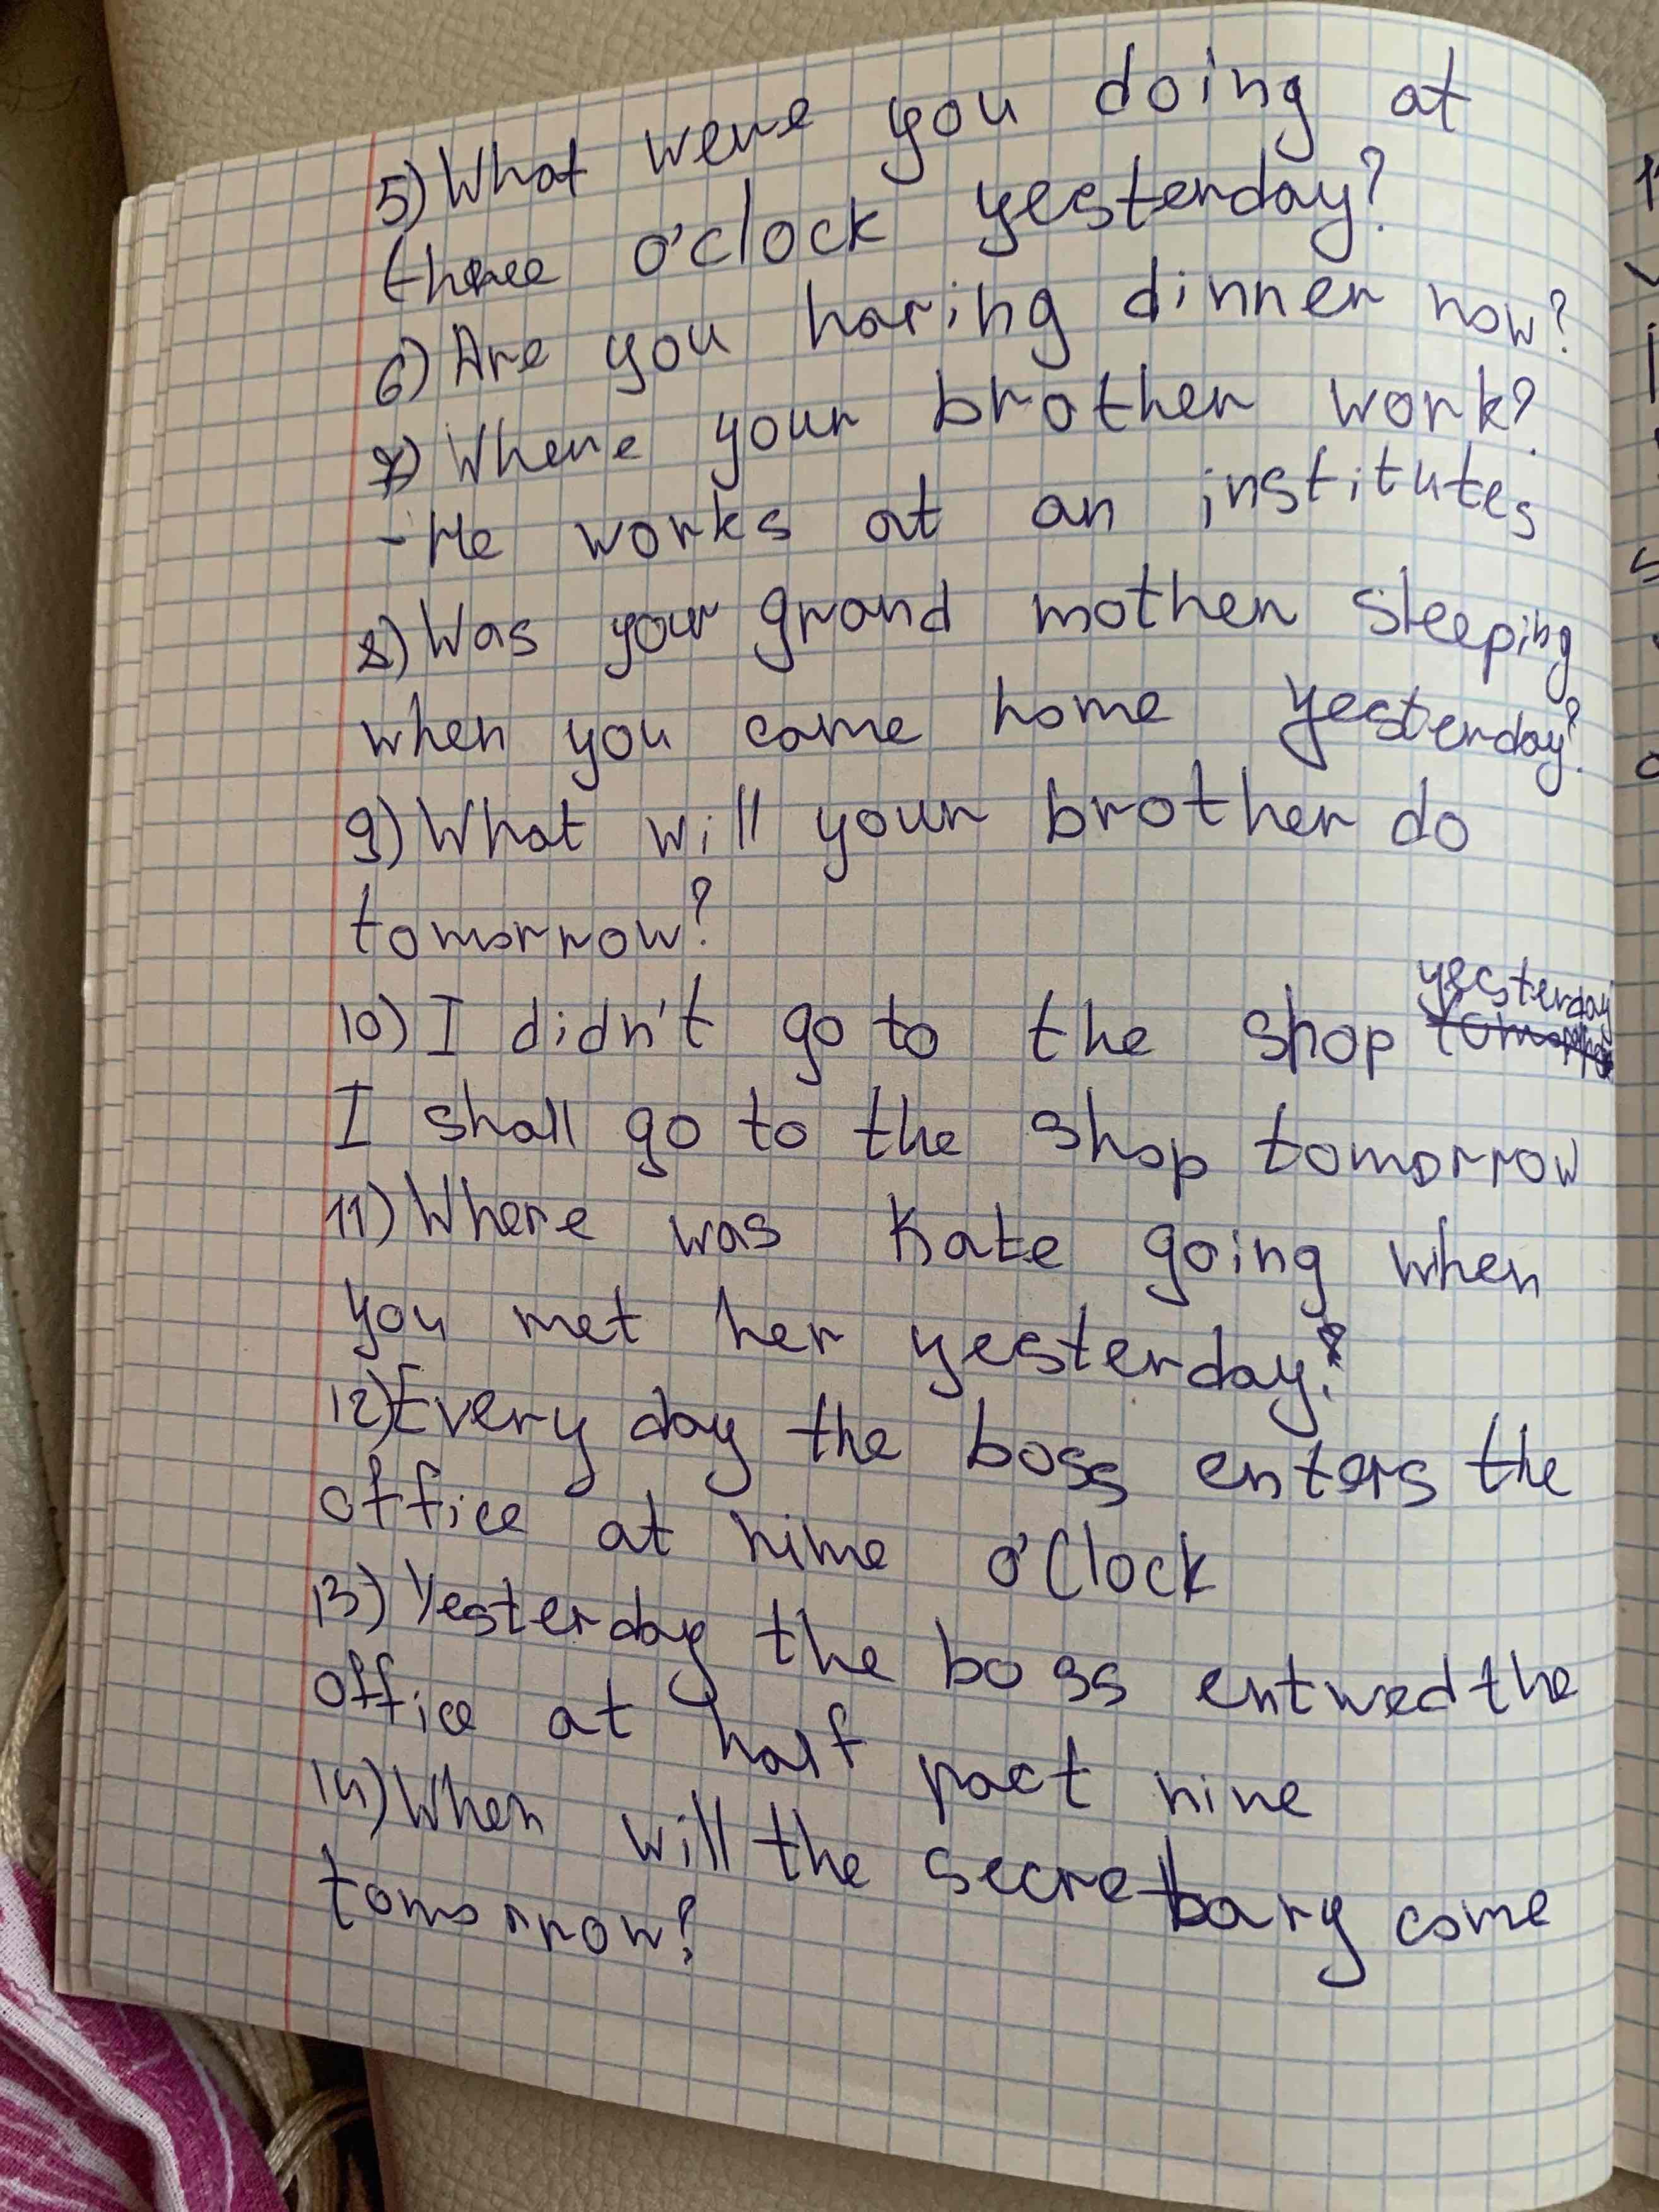 5) What were you doing at
three o'clock yesterday?
6) Are you haring dinner now?
7) Where your brother work?
- He works at an institutes
8) Was your grand mother sleeping
when you came home yesterday?
9) What will your brother do
tomorrow?
10) I didn't go to the shop yesterday
I shall go to the shop tomorrow
11) Where was Kate going when
you met her yesterday?
12) Every day the boss enters the
office at nime o'Clock
13) Yesterday the boss entwed the
office at half pact nine
14) When will the secretary come
tomorrow?